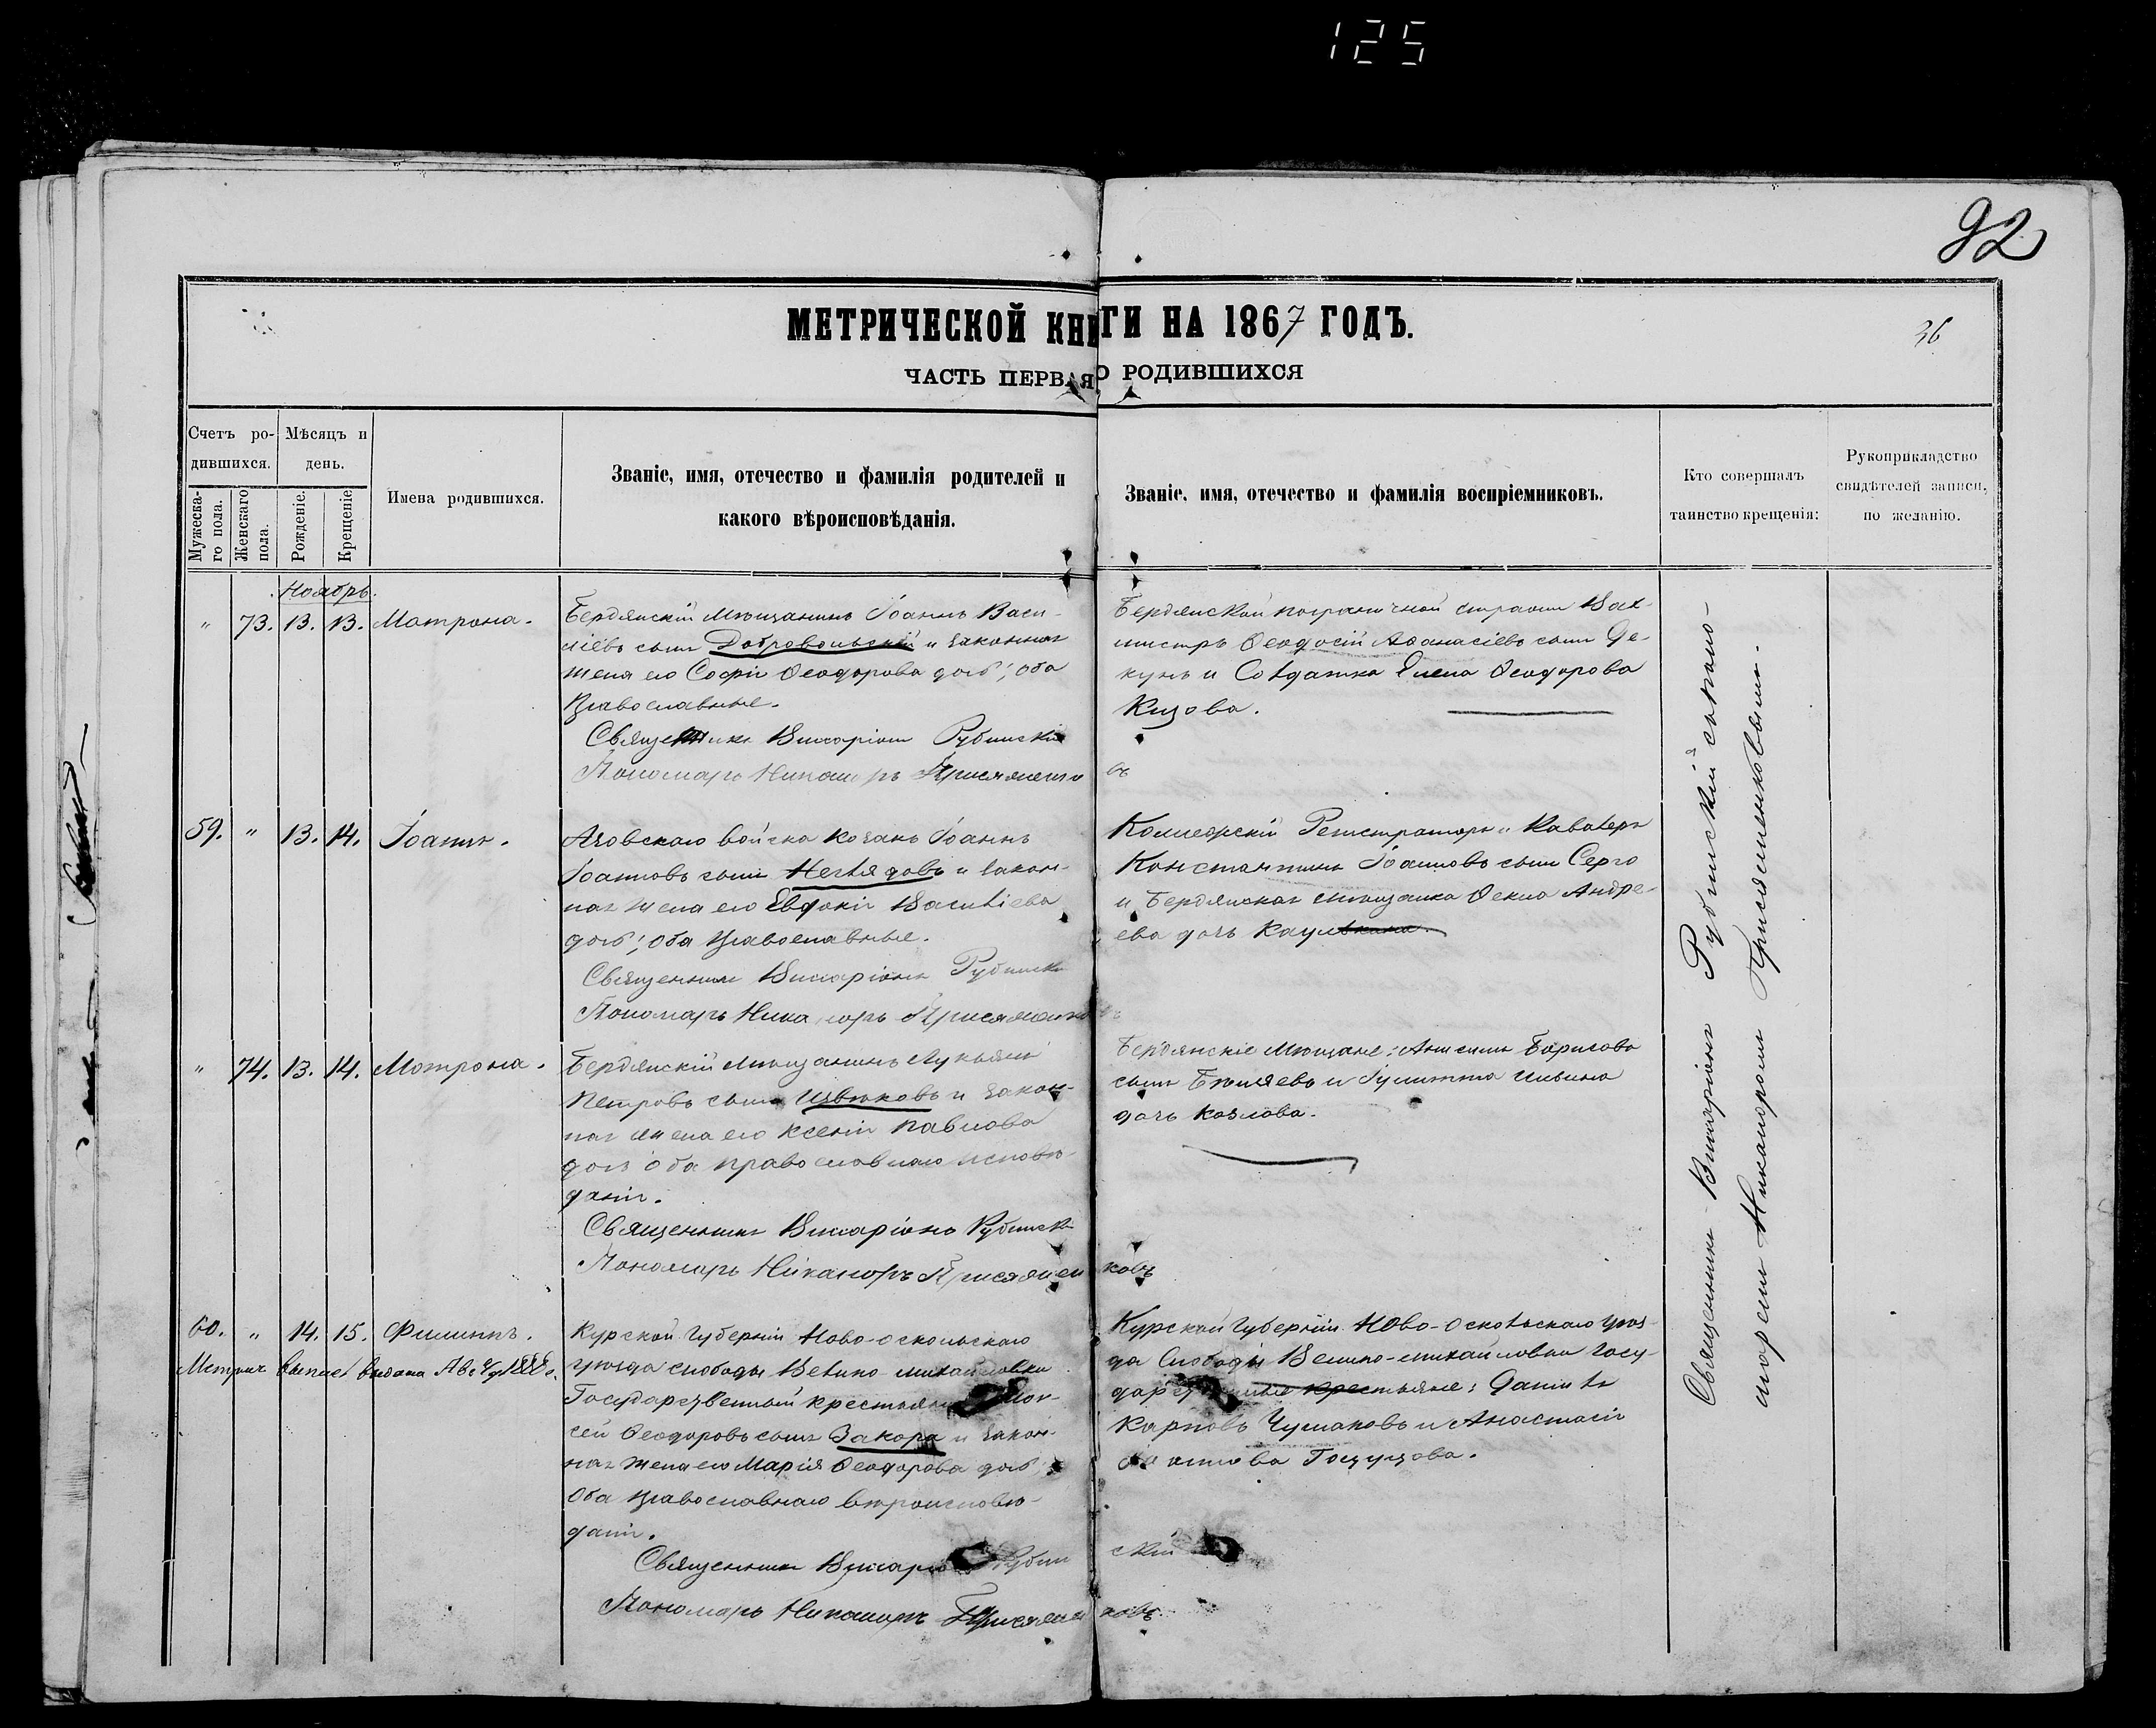 125
92
МЕТРИЧЕСКОЙ КНИГИ НА 1867 ГОДЪ.
36
ЧАСТЬ ПЕРВАЯ О РОДИВШИХСЯ
Счетъ ро-
дившихся.
Мужеска-
го пола.
Женскаго
пола.
Мѣсяцъ и
день.
Рожденіе.
Крещеніе
Имена родившихся.
Званіе, имя, отечество и фамилія родителей и
какого вѣроисповѣданія.
Званіе, имя, отечество и фамилія воспріемниковъ.
Кто совершалъ
таинство крещенія:
Рукоприкладство
свидѣтелей записи,
по желанію.
Ноябрь.
" 73. 13. 13. Матрона.
Бердянскій Мѣщанинъ Іоаннъ Васи-
ліевъ сынъ Добровольскій и законная
жена его Софія Ѳеодорова дочь; оба
Православные.
Священникъ Виссаріонъ Рубинскій
Пономарь Никаноръ Присяженковъ
Бердянской пограничной стражи Вах-
мистръ Ѳеодосій Аѳанасіевъ сынъ Де-
кунъ и Солдатка Елена Ѳеодорова
Кизова.
59. " 13. 14. Іоаннъ.
Азовскаго войска козакъ Іоаннъ
Іоанновъ сынъ и закон-
ная жена его Евдокія Василіева
дочь; оба Православные.
Священникъ Виссаріонъ Рубински
Пономарь Никаноръ Присяженковъ
Коллежскій Регистраторъ и Кавалеръ
Константинъ Іоанновъ сынъ Серго
и Бердянская Мѣщанка Ѳекла Андре-
ева дочь
" 74. 13. 14. Матрона.
Бердянскій Мѣщанинъ Лукьянъ
Петровъ сынъ Цвѣтковъ и закон-
ная жена его Ксенія Павлова
дочь оба православнаго исповѣ-
данія.
Священникъ Виссаріонъ Рубинск
Пономарь Никаноръ Присяженковъ
Бердянскіе Мѣщане: Анисимъ Борисовъ
сынъ Бѣляевъ и Іулитта Ильина
дочь Козлова.
60. " 14. 15. Филиппъ.
Метрич. выпись выдана Авг. 1888 г.
Курской Губерніи Ново-Оскольскаго
уѣзда слободы Велико-михайловки
Государственный крестьянинъ Мои-
сей Ѳеодоровъ сынъ Закора и закон-
ная жена его Марія Ѳеодорова дочь;
Оба православнаго вѣроисповѣ-
данія.
Священникъ Виссаріонъ Рубинскій
Пономарь Никаноръ Присяженковъ
Курской Губерніи Ново-Оскольскаго уѣз-
да Слободы Велико-михайловки Госу-
дарственные крестьяне: Даніилъ
Карповъ Чумаковъ и Анастасія
Гощуцова.
Священникъ Виссаріонъ Рубинскій съ поно-
маремъ Никаноромъ Присяженковымъ.